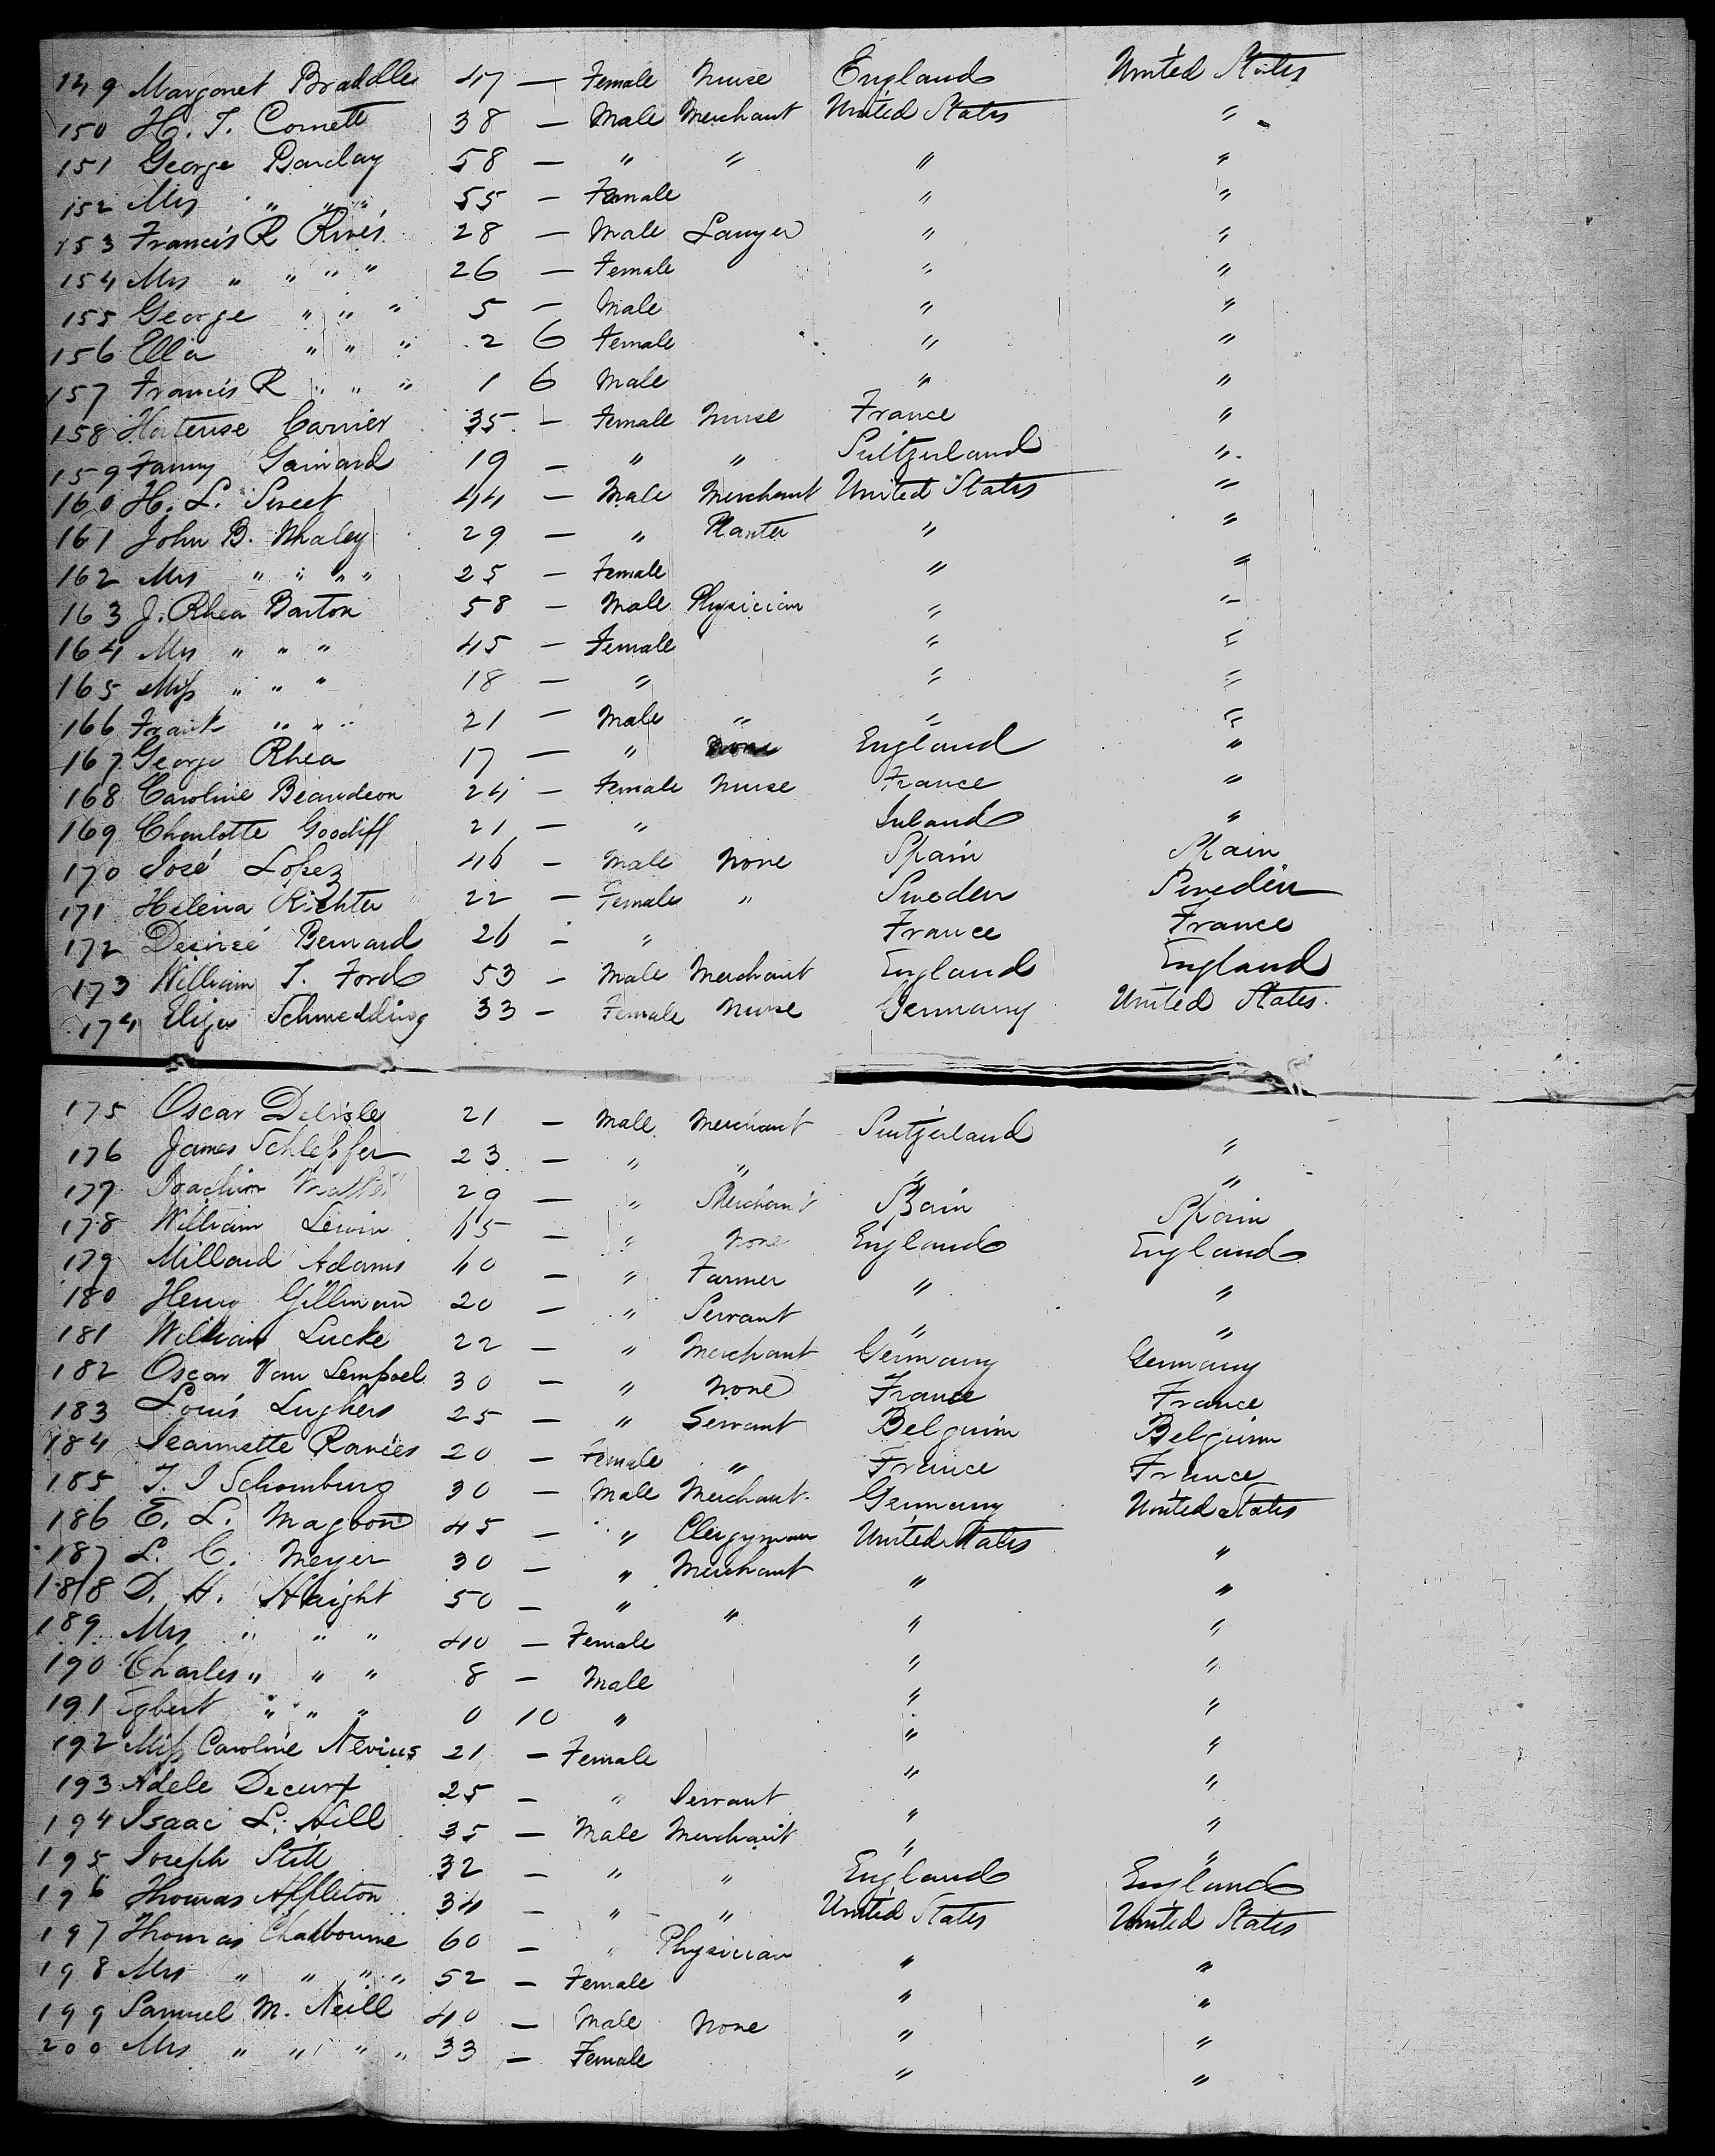 149 Margaret Braddlle 47 — Female Nurse England United States
150 H. T. Cornett 38 — Male Merchant United States "
151 George Barclay 58 — " " " "
152 Mrs " " " 55 — Female " "
153 Francis R Rives 28 — Male Lawyer " "
154 Mrs " " " " 26 — Female " "
155 George " " " 5 — Male " "
156 Ella " " " 2 6 Female " "
157 Francis R " " " 1 6 Male " "
158 Hortense Carrier 35 — Female Nurse France "
159 Fanny Gainard 19 — " " Switzerland "
160 H. L. Street 44 — Male Merchant United States "
161 John B. Whaley 29 — " Planter " "
162 Mrs " " " " 25 — Female " "
163 J. Rhea Barton 58 — Male Physician " "
164 Mrs " " " 45 — Female " "
165 Miss " " " 18 — " " "
166 Frank " " " 21 — Male " " "
167 George Rhea 17 — " England "
168 Caroline Beaudeon 24 — Female Nurse France "
169 Charlotte Goodiff 21 — " Ireland "
170 José Lopez 46 — Male None Spain Spain
171 Helena Richter 22 — Female " Sweden Sweden
172 Desireé Bernard 26 — " France France
173 William T. Ford 53 — Male Merchant England England
174 Eliza Schmedding 33 — Female Nurse Germany United States
175 Oscar Delisle 21 — Male Merchant Switzerland "
176 James Schlepfer 23 — " " " "
177 Joachim 29 — " Merchant Spain Spain
178 William Lewin 65 — " None England England
179 Millard Adams 40 — " Farmer " "
180 Henry Gillman 20 — " Servant " "
181 William Lucke 22 — " Merchant Germany Germany
182 Oscar Van Lempoel 30 — " None France France
183 Louis Lughers 25 — " Servant Belguim Belguim
184 Jeannette Ranies 20 — Female " France France
185 T. J Schomburg 30 — Male Merchant Germany United States
186 E. L. Magoon 45 — " Clergyman United States "
187 L. C. Meyer 30 — " Merchant " "
188 D. H. Haight 50 — " " " "
189 Mrs " " " 40 — Female " "
190 Charles " " " 8 — Male " "
191 Egbert " " " 0 10 " " "
192 Miss Caroline Nevius 21 — Female " "
193 Adele Decurx 25 — " Servant " "
194 Isaac L. Hill 35 — Male Merchant " "
195 Joseph Still 32 — " " England England
196 Thomas Appleton 34 — " " United States United States
197 Thomas Chadbourne 60 — " Physician " "
198 Mrs " " " " 52 — Female " "
199 Samuel M. Neill 40 — Male None " "
200 Mrs " " " " 33 — Female " "